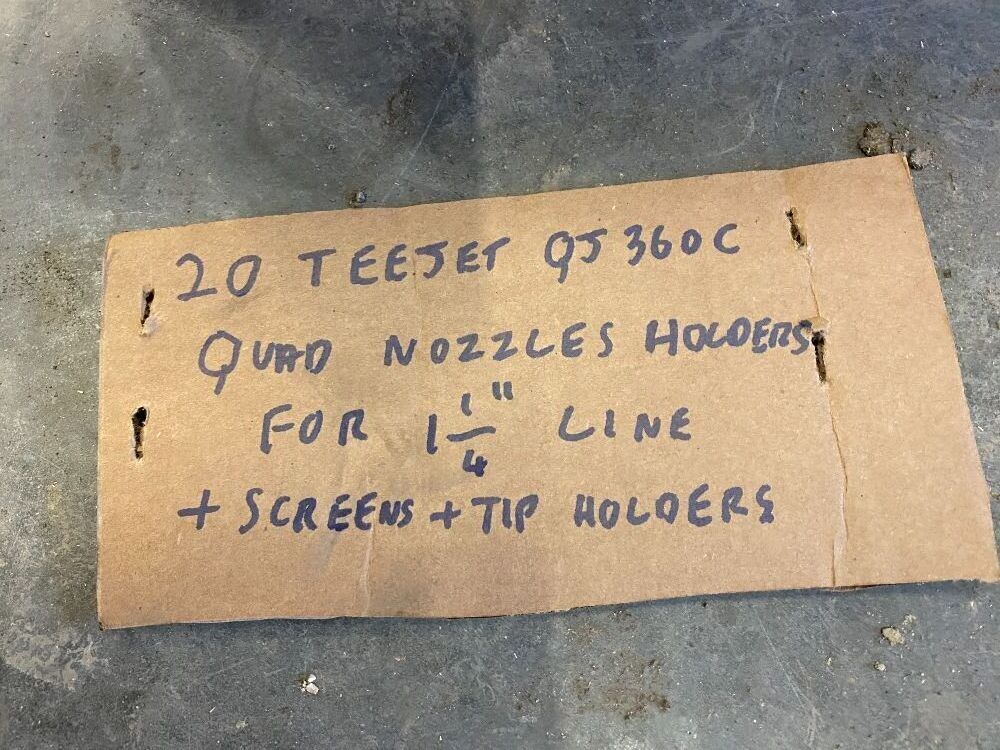 20 TEEJET QJ360C
QUAD NOZZLES HOLDERS
FOR 1 1/4" LINE
+ SCREENS + TIP HOLDERS